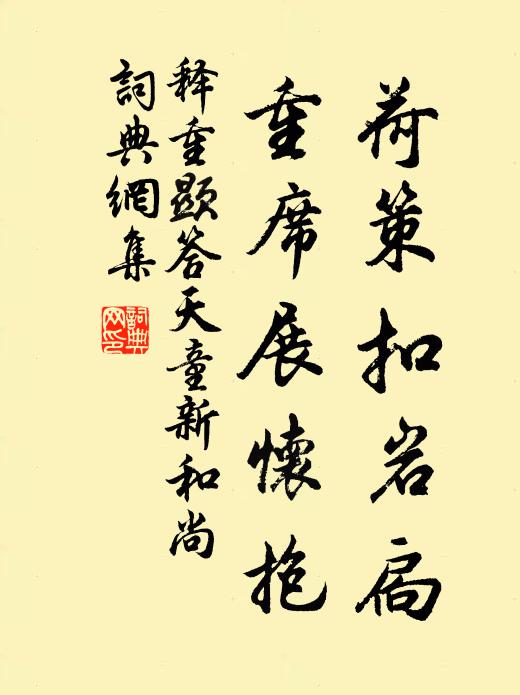 荷策扣岩扃
重席展懷抱
释重顯答天童新和尚
詞典網集
詞典網印